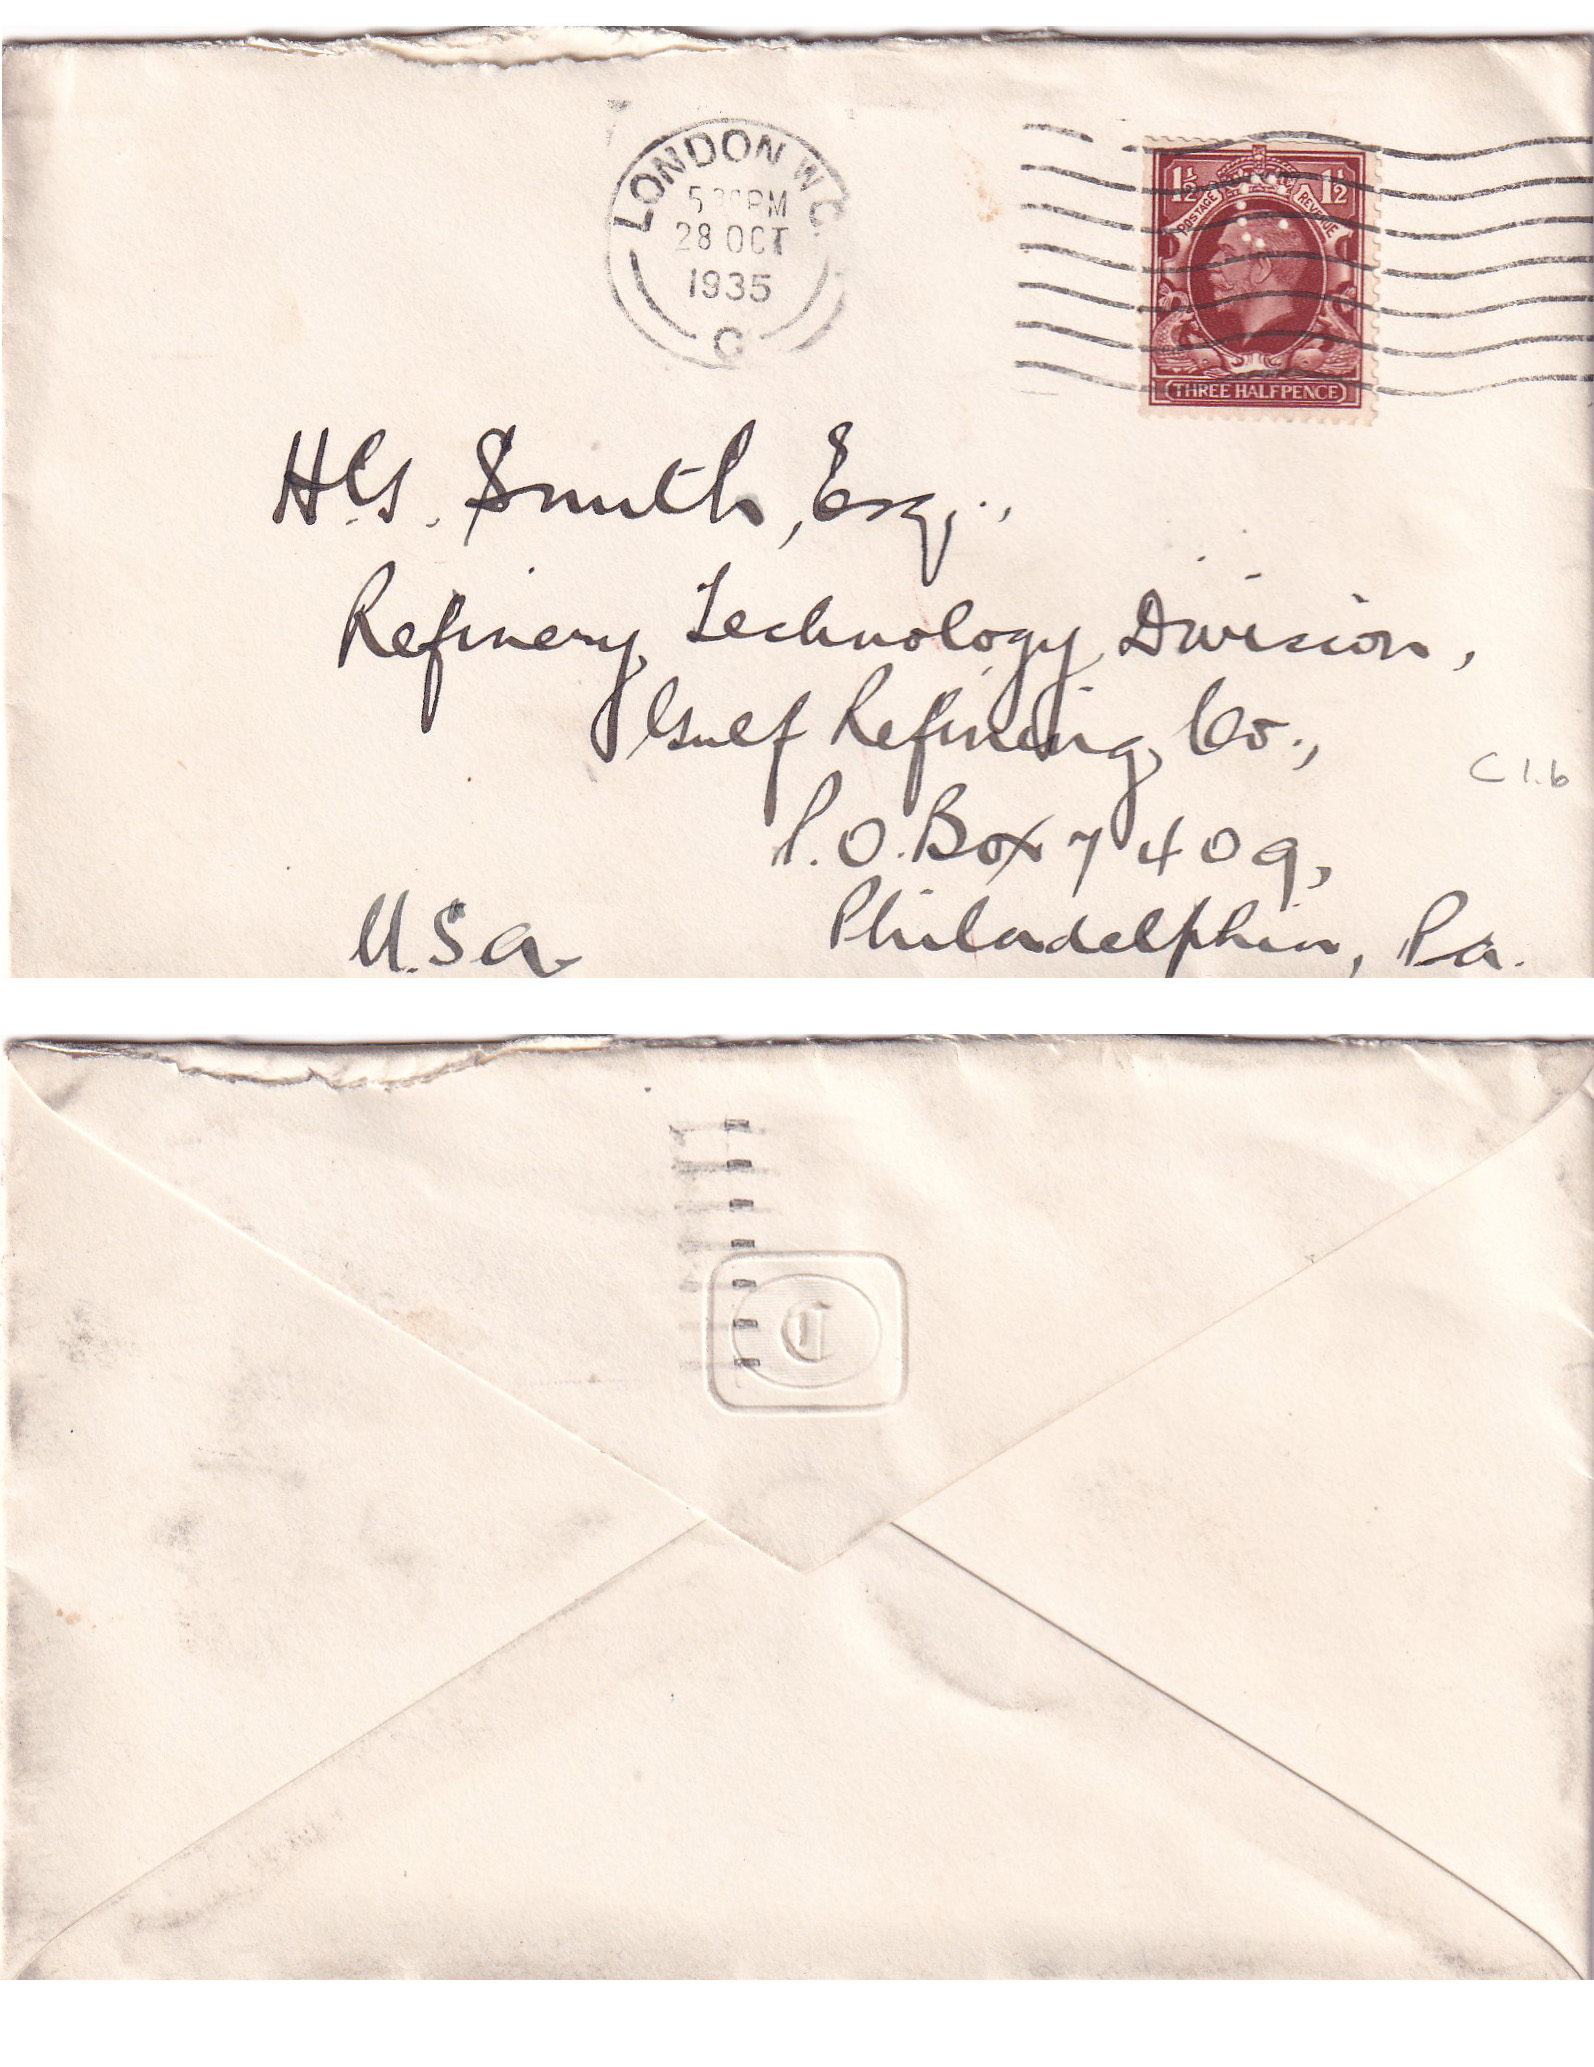 LONDON W.C
5 30 PM
28 OCT
1935
C
1½ 1½
POSTAGE REVENUE
THREE HALFPENCE
H.G. Smith, Esq.,
Refinery Technology Division,
Gulf Refining Co.,
C 1.b
P.O. Box 7409,
Philadelphia, Pa.
U.S.A.
C